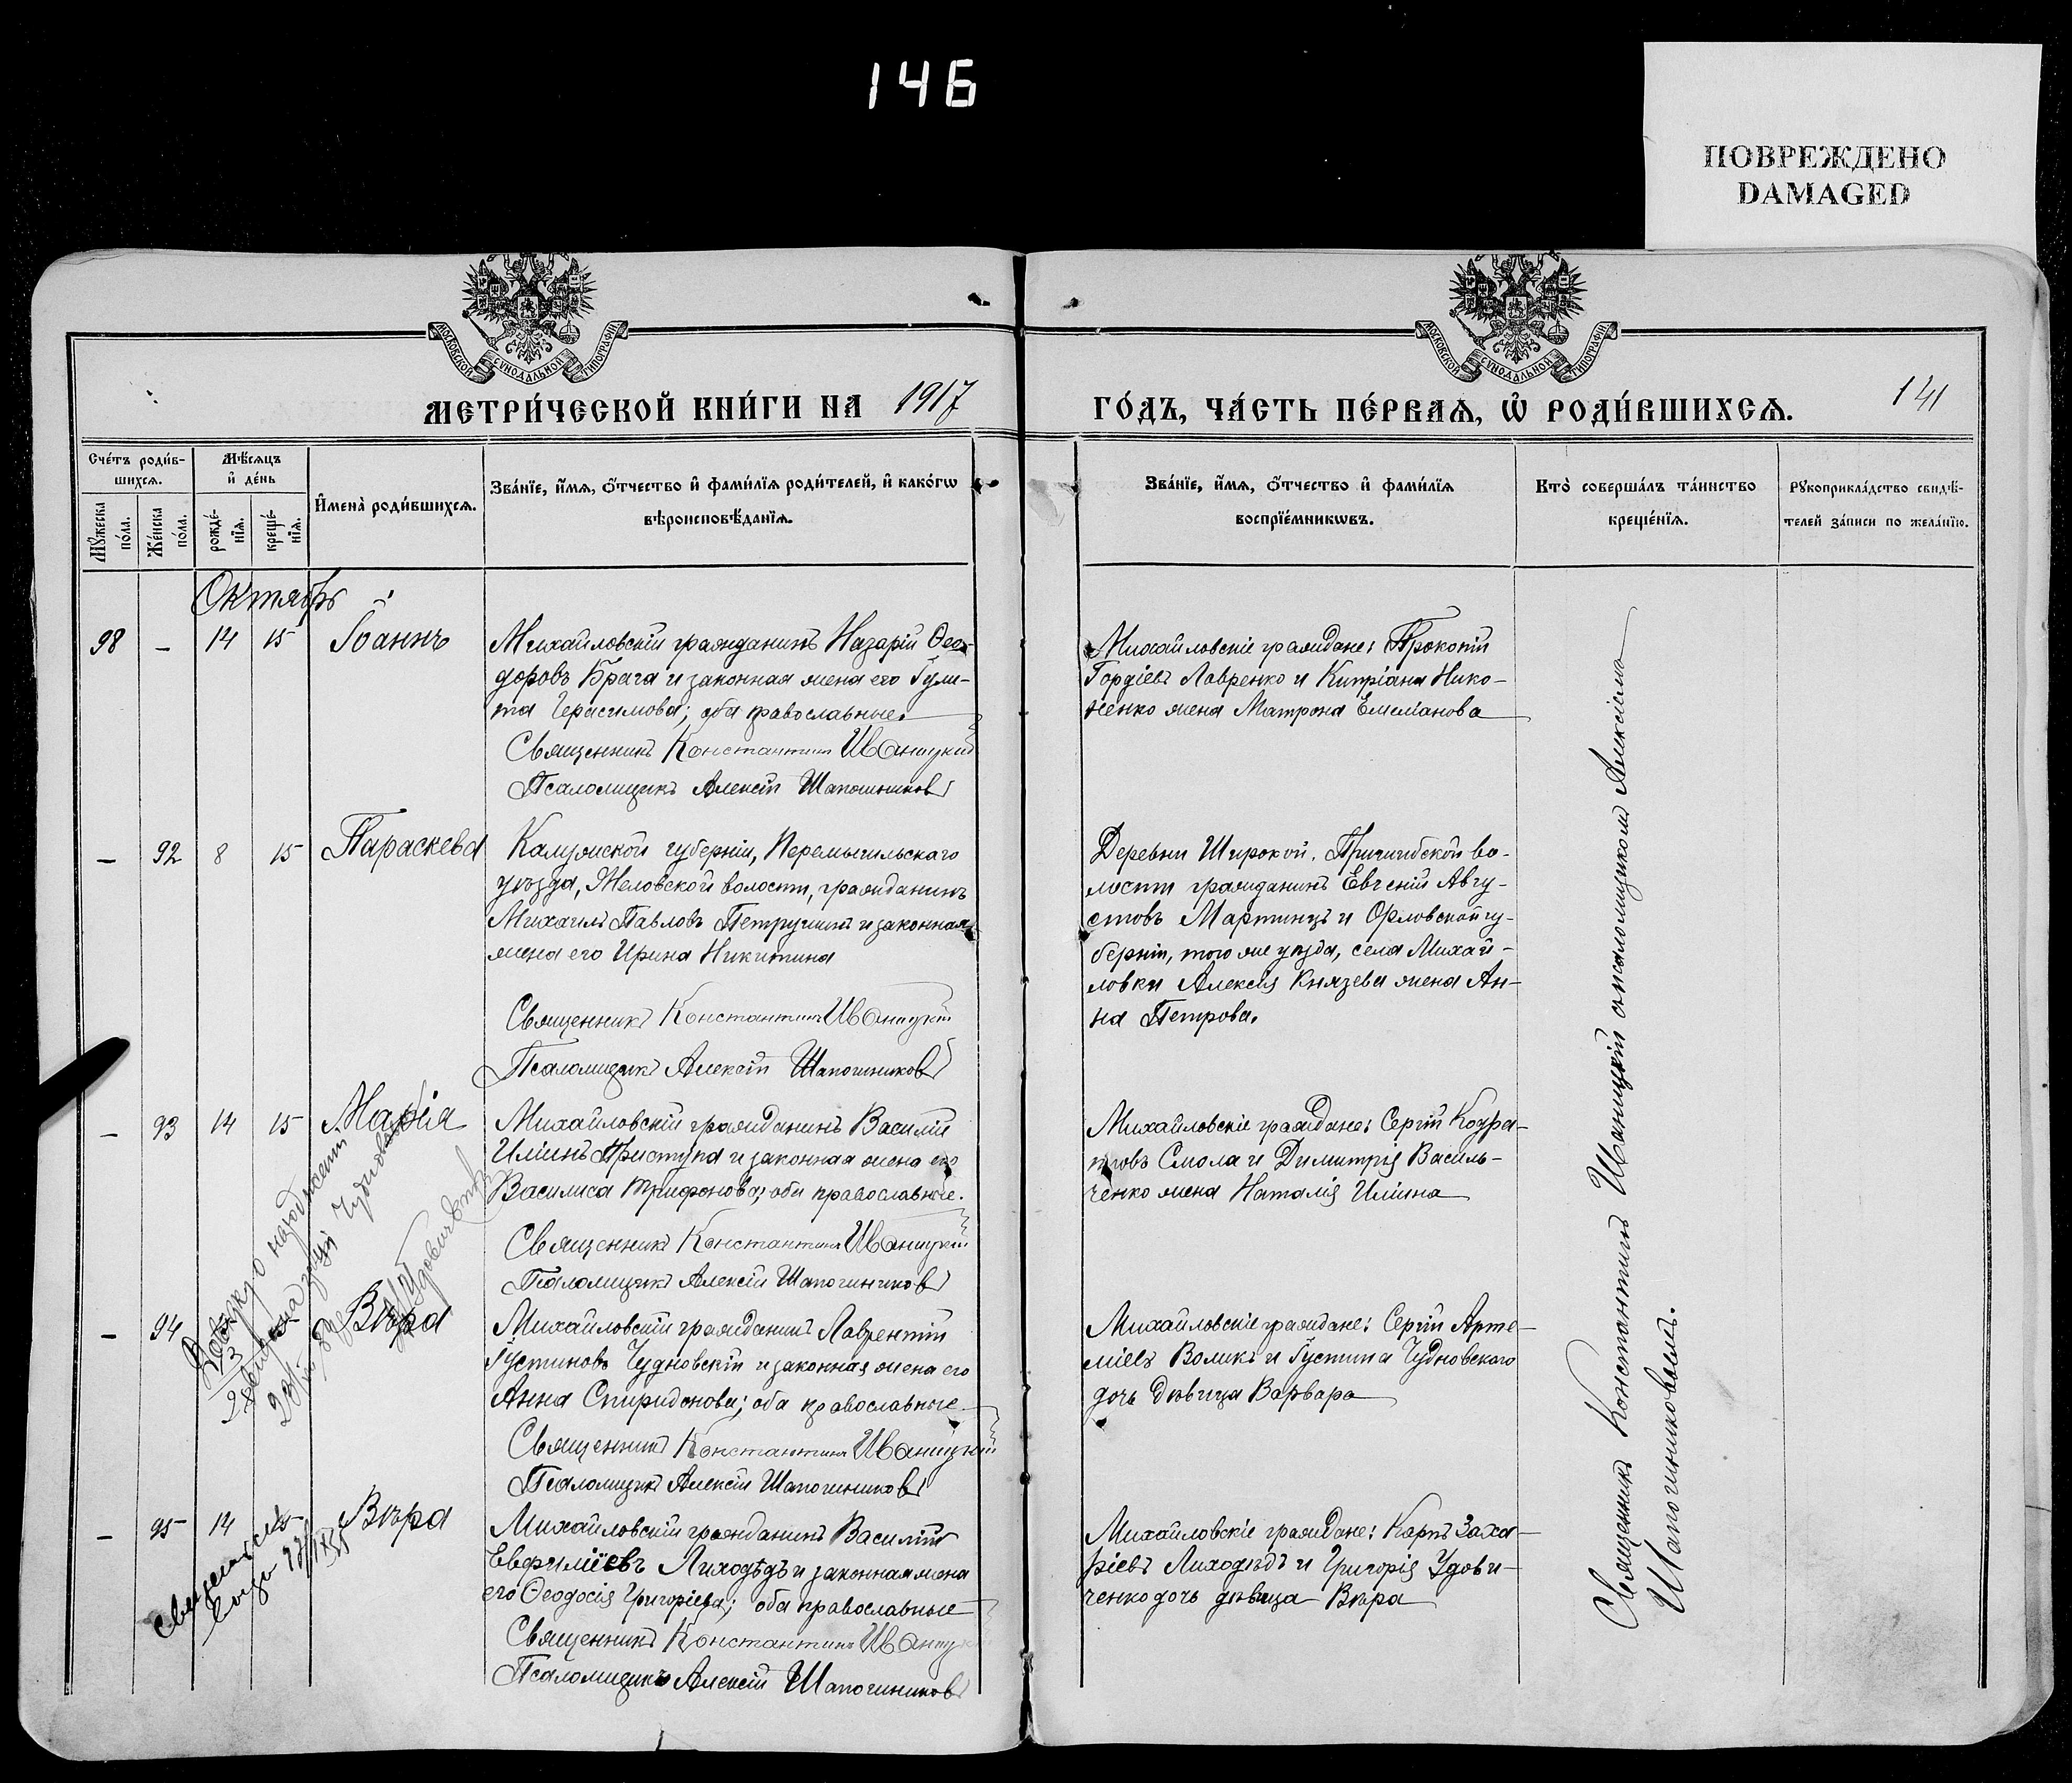 146
ПОВРЕЖДЕНО
DAMAGED
МОСКОВСКОЙ СѴНОДАЛЬНОЙ ТИПОГРАФІИ
МОСКОВСКОЙ СѴНОДАЛЬНОЙ ТИПОГРАФІИ
МЕТРИ́ЧЕСКОЙ КНИ́ГИ НА 1917
ГО́ДЪ, ЧА́СТЬ ПЕ́РВАѦ, Ѡ҆ РОДИ́ВШИХСѦ.
141
Сче́тъ роди́в-
шихсѧ.
Мꙋ́жеска по́ла.
Же́нска по́ла.
Мѣ́сѧцъ
и҆ де́нь
рожде́-
нїѧ.
креще́-
нїѧ.
И҆мена̀ роди́вшихсѧ.
Зва́нїе, и҆́мѧ, ѻ҆́тчество и҆ фами́лїѧ роди́телей, и҆ како́гѡ
вѣроисповѣ́данїѧ.
Зва́нїе, и҆́мѧ, ѻ҆́тчество и҆ фами́лїѧ
воспрїе́мникѡвъ.
Кто̀ соверша́лъ та́инство
креще́нїѧ.
Рꙋкоприкла́дство свидѣ́-
телей за́писи по жела́нїю.
Октябрь
98 – 14 15 Іоаннъ
Михайловскій гражданинъ Назарій Ѳео-
доровъ Брага и законная жена его Іули-
та Герасимова; оба православные.
Священникъ Константинъ Иваницкій
Псаломщикъ Алексій Шапошниковъ
Михайловскіе граждане: Прокопій
Гордіевъ Лавренко и Кипріана Нико-
ненко жена Матрона Емеліанова
– 92 8 15 Параскева
Калужской губерніи, Перемышльскаго
уѣзда, Желовской волости, гражданинъ
Михаилъ Павловъ Петрушинъ и законная
жена его Ирина Никитина
Священникъ Константинъ Иваницкій
Псаломщикъ Алексій Шапошниковъ
Деревни Широкой, Пришибской во-
лости гражданинъ Евгеній Авгу-
стовъ Мартинцъ и Орловской гу-
берніи, того же уѣзда, села Михай-
ловки Алексія Князева жена Ан-
на Петрова.
– 93 14 15 Марія
Михайловскій гражданинъ Василій
Иліинъ Приступа и законная жена его
Василиса Трифонова; оба православные.
Священникъ Константинъ Иваницкій
Псаломщикъ Алексій Шапошниковъ
Михайловскіе граждане: Сергій Кодра-
товъ Смола и Димитрія Василь-
ченко жена Наталія Иліина
– 94 Вѣра
Михайловскій гражданинъ Лаврентій
Іустиновъ Чудновскій и законная жена его
Анна Спиридонова; оба православные
Священникъ Константинъ Иваницкій
Псаломщикъ Алексій Шапошниковъ
Михайловскіе граждане: Сергій Арте-
міевъ Воликъ и Іустина Чудновскаго
дочь дѣвица Варвара
– 95 14 15 Вѣра
Михайловскій гражданинъ Василій
Евфиміевъ Лиходѣдъ и законная жена
его Ѳеодосія Григоріева; оба православные
Священникъ Константинъ Иваницк
Псаломщикъ Алексій Шапошниковъ
Михайловскіе граждане: Карпъ Заха-
ріевъ Лиходѣдъ и Григорія Удови-
ченко дочь дѣвица Вѣра
Священникъ Константинъ Иваницкій съ псаломщикомъ Алексіемъ
Шапошниковымъ.